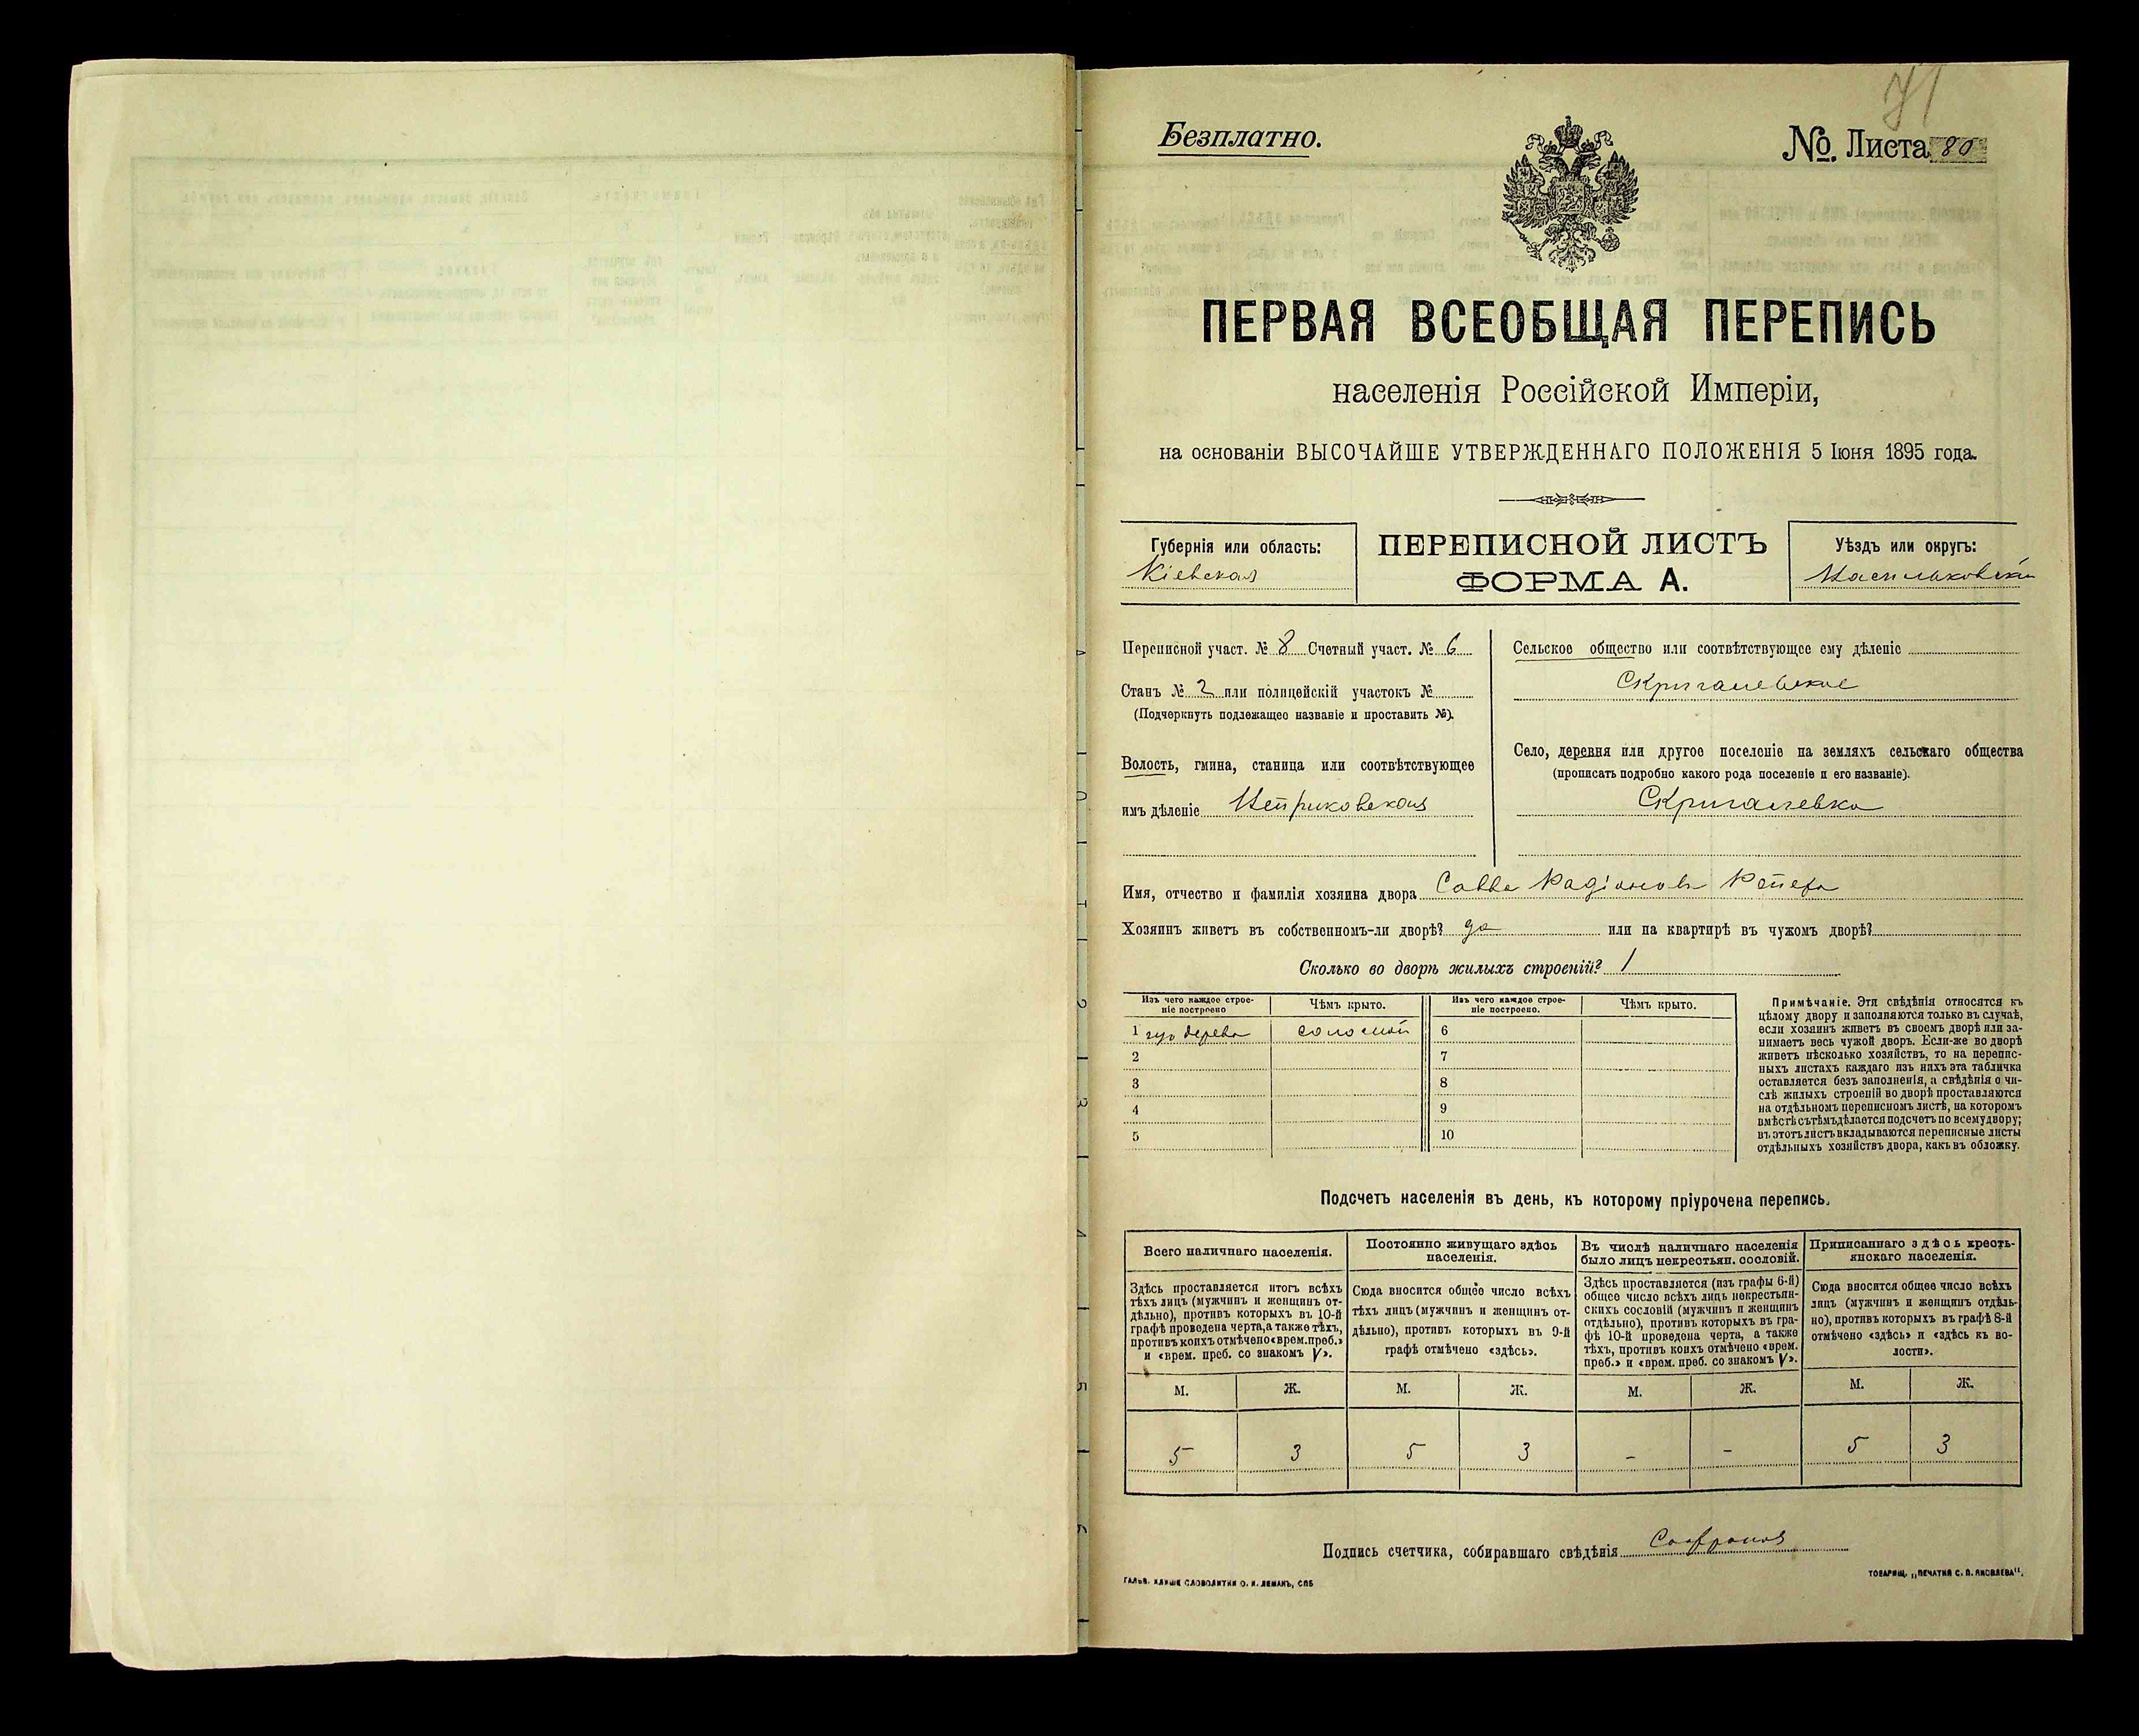 71
Безплатно.
№. Листа 80
ПЕРВАЯ ВСЕОБЩАЯ ПЕРЕПИСЬ
населенія Россійской Имперіи,
на основаніи ВЫСОЧАЙШЕ УТВЕРЖДЕННАГО ПОЛОЖЕНІЯ 5 Іюня 1895 года.
Губернія или область:
Кіевская
ПЕРЕПИСНОЙ ЛИСТЪ
ФОРМА А.
Уѣздъ или округъ:
Васильковскій
Переписной участ. № 8 Счетный участ. № 6
Станъ № 2 или полицейскій участокъ №
(Подчеркнуть подлежащее названіе и проставить №).
Волость, гмина, станица или соотвѣтствующее
имъ дѣленіе
Сельское общество или соотвѣтствующее ему дѣленіе
Скригалевское
Село, деревня или другое поселеніе на земляхъ сельскаго общества
(прописать подробно какого рода поселеніе и его названіе).
Скригалевка
Имя, отчество и фамилія хозяина двора Савва Радіоновъ Репета
Хозяинъ живетъ въ собственномъ-ли дворѣ? да или на квартирѣ въ чужомъ дворѣ?
Сколько во дворѣ жилыхъ строеній? 1
Изъ чего каждое строе-
ніе построено
Чѣмъ крыто.
Изъ чего каждое строе-
ніе построено.
Чѣмъ крыто.
1 изъ дерева соломой
2
3
4
5
6
7
8
9
10
Примѣчаніе. Эти свѣдѣнія относятся къ
цѣлому двору и заполняются только въ случаѣ,
если хозяинъ живетъ въ своемъ дворѣ или за-
нимаетъ весь чужой дворъ. Если-же во дворѣ
живетъ нѣсколько хозяйствъ, то на перепис-
ныхъ листахъ каждаго изъ нихъ эта табличка
оставляется безъ заполненія, а свѣдѣнія о чи-
слѣ жилыхъ строеній во дворѣ проставляются
на отдѣльномъ переписномъ листѣ, на которомъ
вмѣстѣ съ тѣмъ дѣлается подсчетъ по всему двору;
въ этотъ листъ вкладываются переписные листы
отдѣльныхъ хозяйствъ двора, какъ въ обложку.
Подсчетъ населенія въ день, къ которому пріурочена перепись.
Всего наличнаго населенія.
Здѣсь проставляется итогъ всѣхъ
тѣхъ лицъ (мужчинъ и женщинъ от-
дѣльно), противъ которыхъ въ 10-й
графѣ проведена черта, а также тѣхъ,
противъ коихъ отмѣчено «врем. преб.»
и «врем. преб. со знакомъ V».
Постоянно живущаго здѣсь
населенія.
Сюда вносится общее число всѣхъ
тѣхъ лицъ (мужчинъ и женщинъ от-
дѣльно), противъ которыхъ въ 9-й
графѣ отмѣчено «здѣсь».
Въ числѣ наличнаго населенія
было лицъ некрестьян. сословій.
Здѣсь проставляется (изъ графы 6-й)
общее число всѣхъ лицъ некрестьян-
скихъ сословій (мужчинъ и женщинъ
отдѣльно), противъ которыхъ въ гра-
фѣ 10-й проведена черта, а также
тѣхъ, противъ коихъ отмѣчено «врем.
преб.» и «врем. преб. со знакомъ V».
Приписаннаго здѣсь кресть-
янскаго населенія.
Сюда вносится общее число всѣхъ
лицъ (мужчинъ и женщинъ отдѣль-
но), противъ которыхъ въ графѣ 8-й
отмѣчено «здѣсь» и «здѣсь къ во-
лости».
М. Ж. М. Ж. М. Ж. М. Ж.
5 3 5 3 - - 5 3
Подпись счетчика, собиравшаго свѣдѣнія
ГАЛЬВ. КЛИШЕ СЛОВОЛИТНИ О. И. ЛЕМАНЪ, СПБ
ТОВАРИЩ. „ПЕЧАТНЯ С. П. ЯКОВЛЕВА".